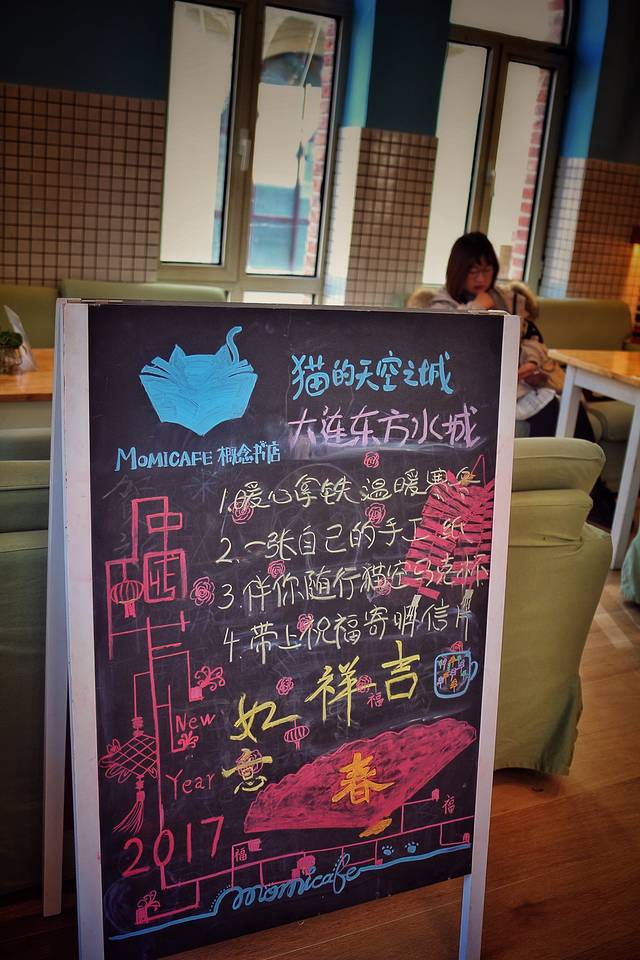 猫的天空之城
大连东方水城
MOMICAFE 概念书店
1.暖心拿铁 温暖
2.一张自己的手工 纸
3.伴你随行貓空马克杯
4.带上祝福寄明信片
吉祥如意
福
New
Year
2017
春
福
福
momicafe